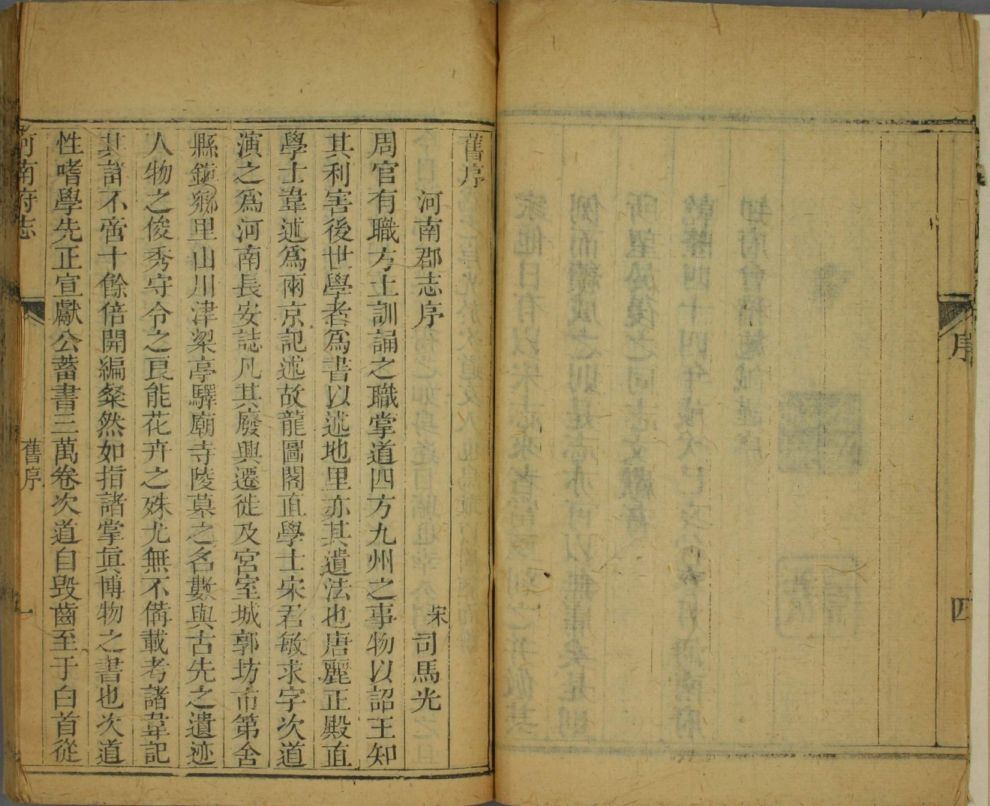 序
四
舊序
河南郡志序
宋 司馬光
周官有職方土訓誦之職掌道四方九州之事物以詔王知
其利害後世學者爲書以述地里亦其遺法也唐麗正殿直
學士韋述爲兩京記述故龍圖閣直學士宋君敏求字次道
演之爲河南長安誌凡其廢興遷徙及宮室城郭坊市第舍
縣鎮鄉里山川津梁亭驛廟寺陵墓之名數與古先之遺迹
人物之俊秀守令之良能花卉之殊尤無不備載考諸韋記
其詳不啻十餘倍開編粲然如指諸掌真博物之書也次道
性嗜學先正宣獻公蓄書三萬卷次道自毀齒至于白首從
河南府志
舊序
一